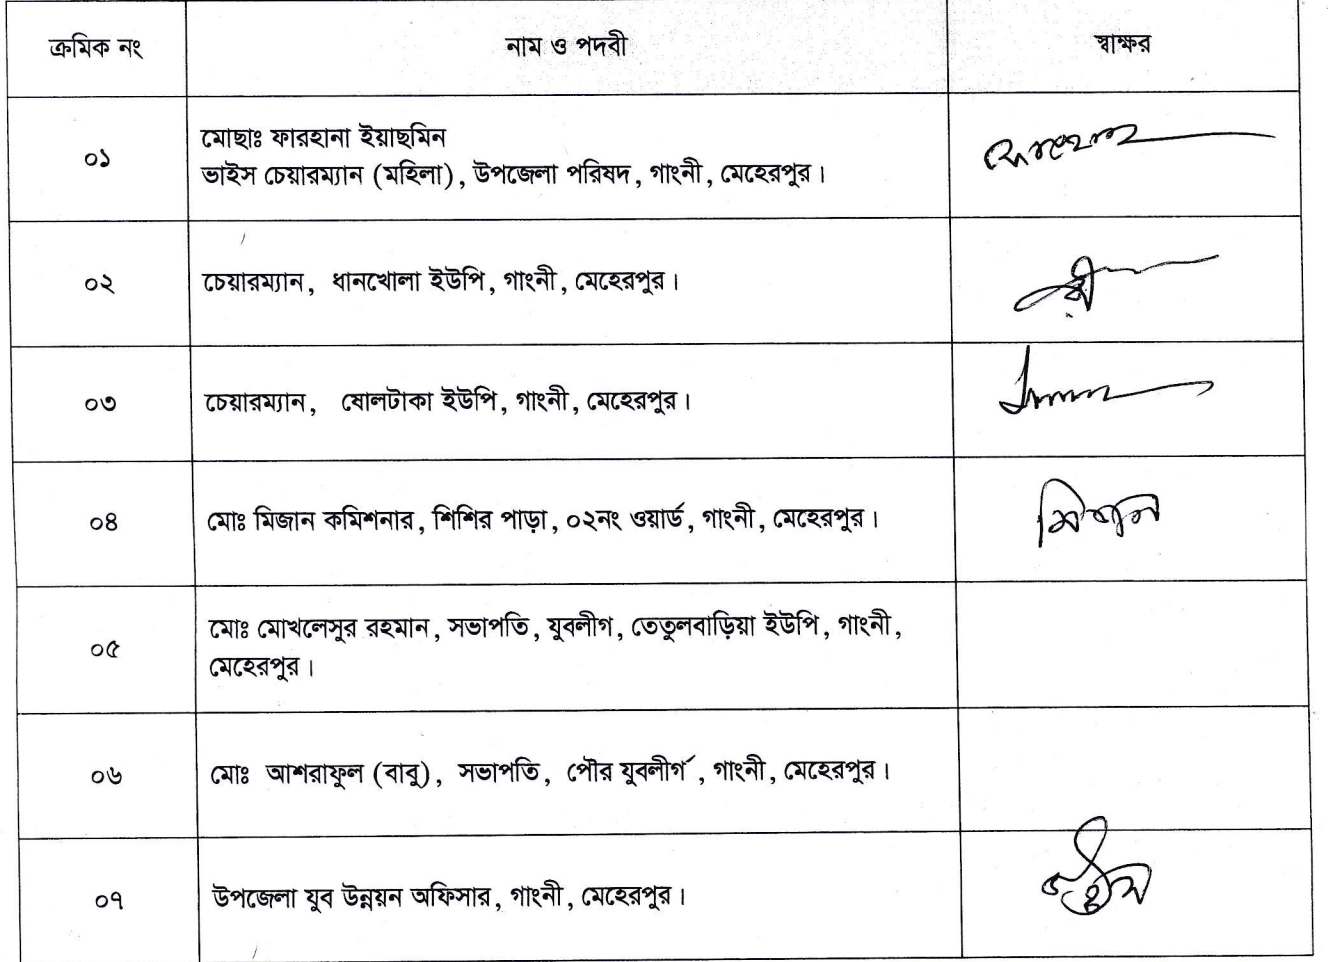 ক্রমিক নং নাম ও পদবী স্বাক্ষর
০১ মোছাঃ ফারহানা ইয়াছমিন
ভাইস চেয়ারম্যান (মহিলা), উপজেলা পরিষদ, গাংনী, মেহেরপুর।
০২ চেয়ারম্যান, ধানখোলা ইউপি, গাংনী, মেহেরপুর।
০৩ চেয়ারম্যান, ষোলটাকা ইউপি, গাংনী, মেহেরপুর।
০৪ মোঃ মিজান কমিশনার, শিশির পাড়া, ০২নং ওয়ার্ড, গাংনী, মেহেরপুর।
০৫ মোঃ মোখলেসুর রহমান, সভাপতি, যুবলীগ, তেতুলবাড়িয়া ইউপি, গাংনী,
মেহেরপুর।
০৬ মোঃ আশরাফুল (বাবু), সভাপতি, পৌর যুবলীগ, গাংনী, মেহেরপুর।
০৭ উপজেলা যুব উন্নয়ন অফিসার, গাংনী, মেহেরপুর।